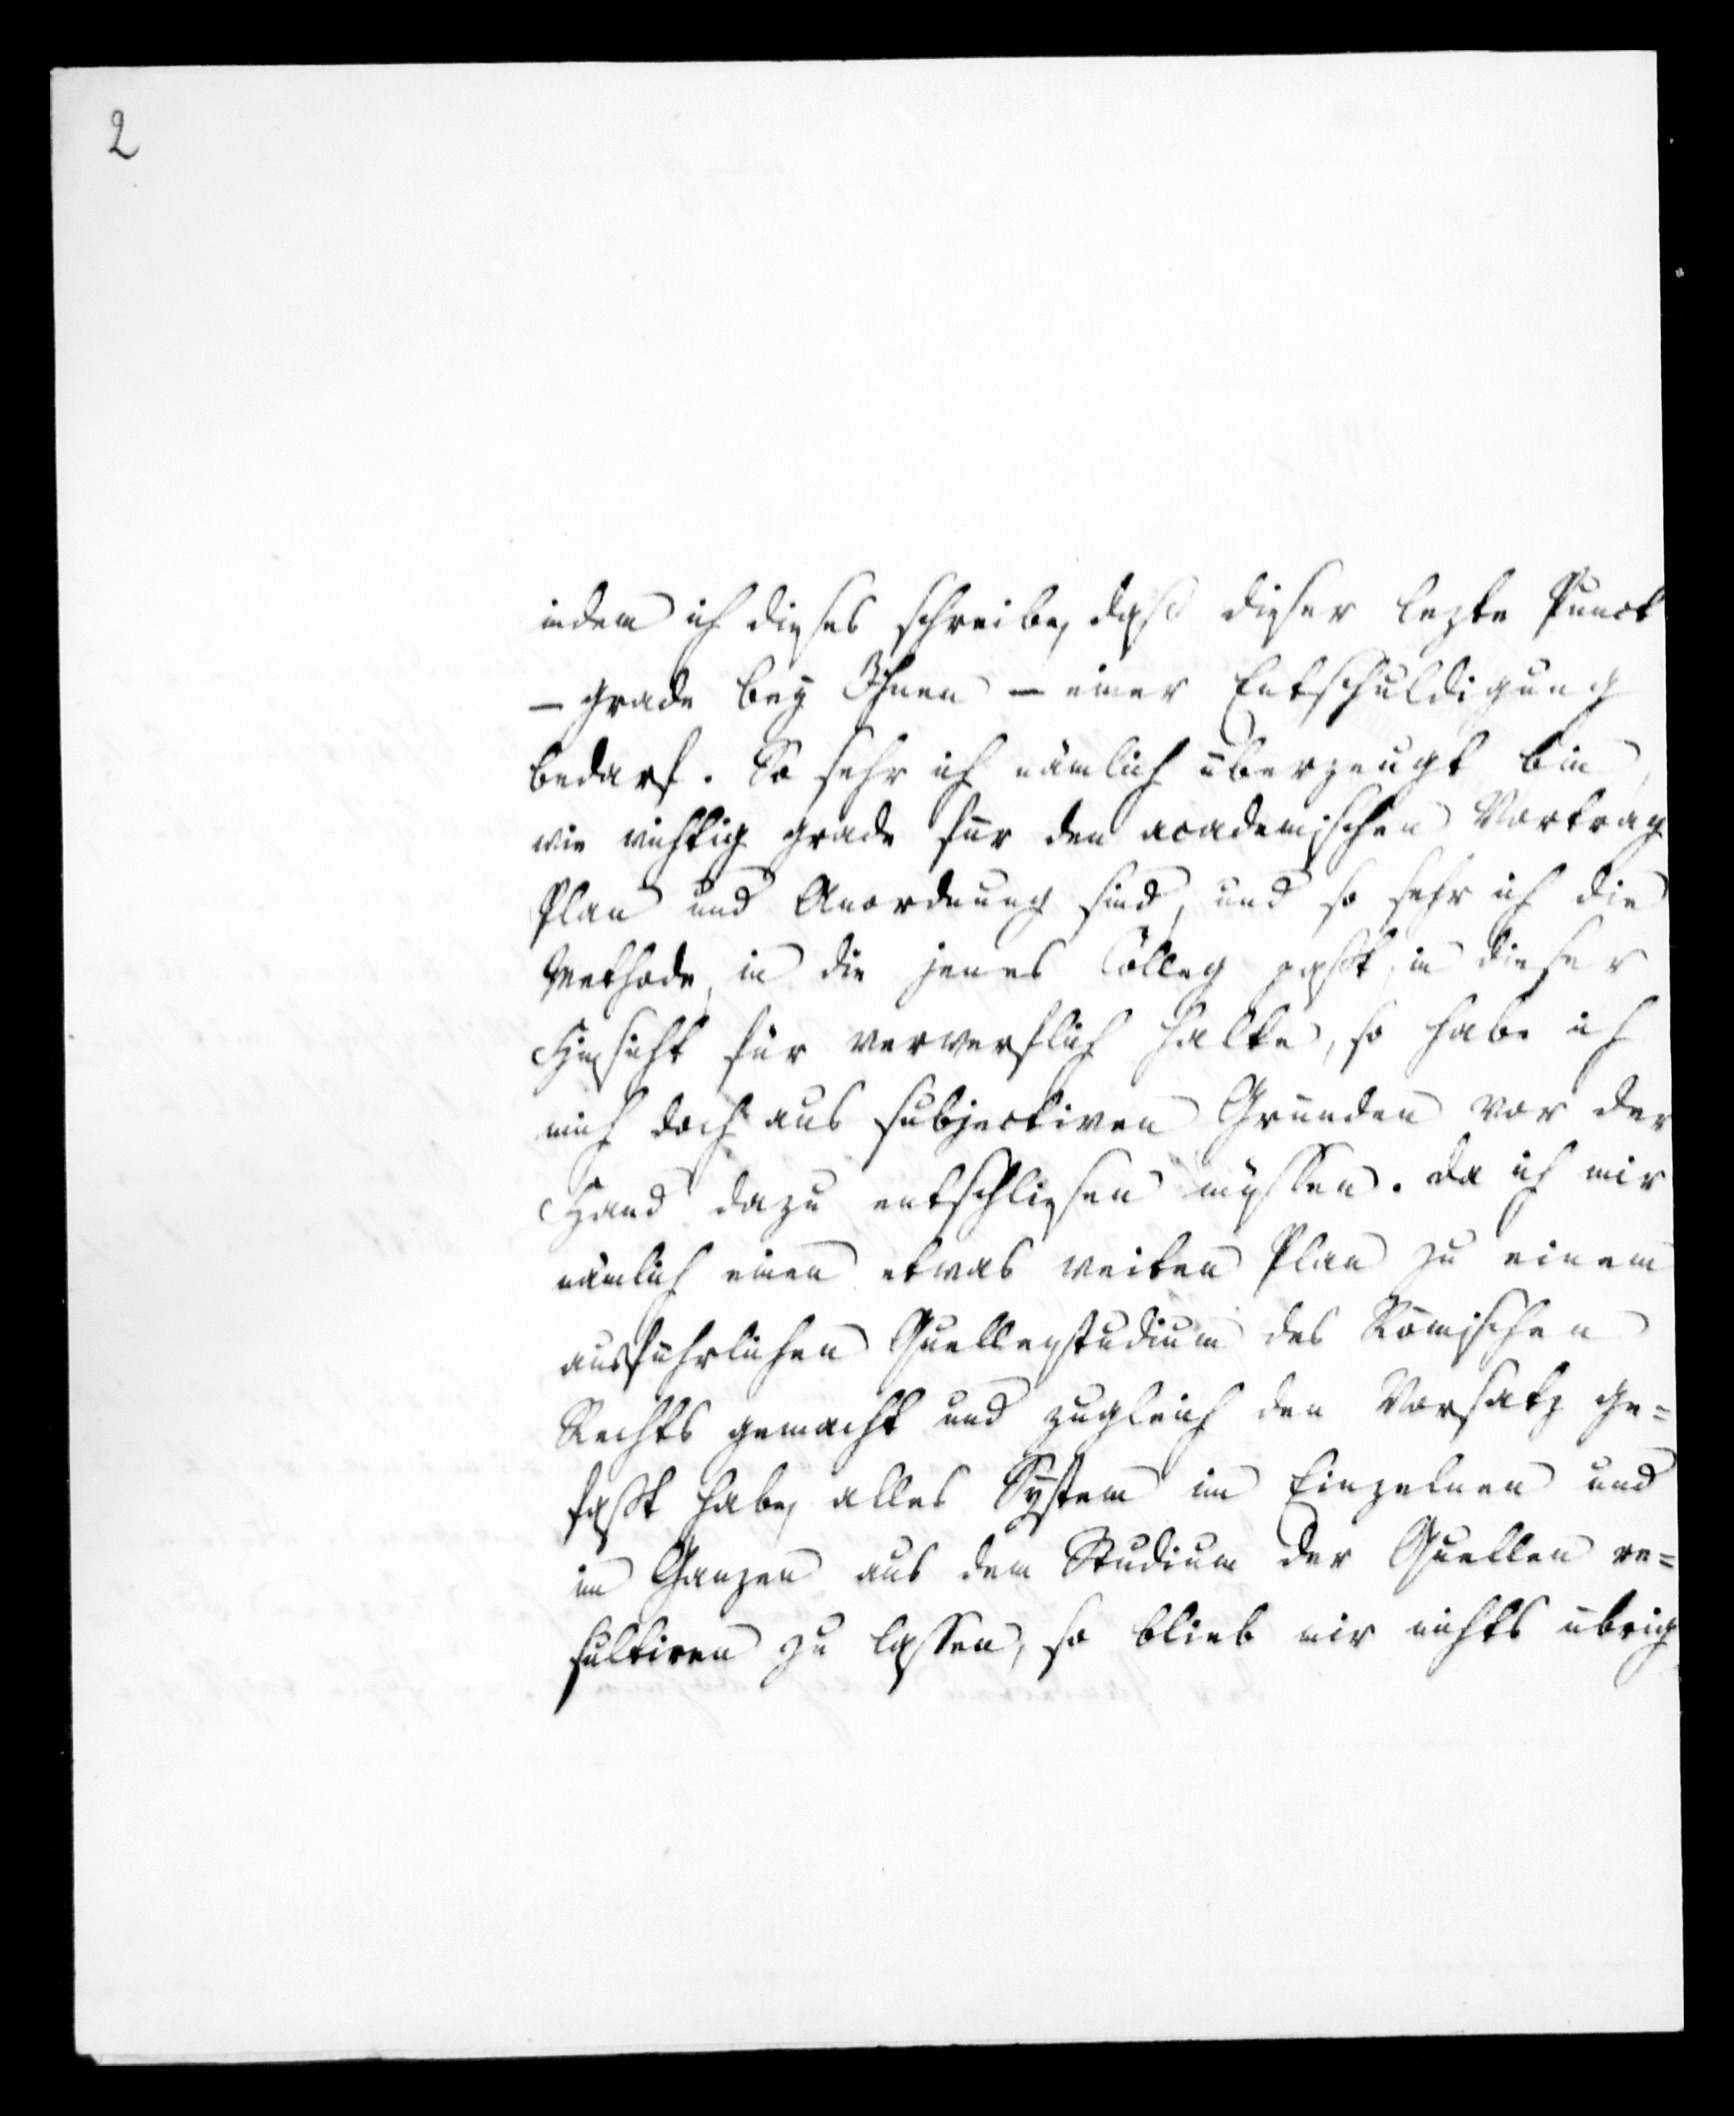 2
indem ich dieses schreibe, daß dieser lezte Punct
– grade bey Ihnen – einer Entschuldigung
bedarf. So sehr ich nämlich überzeugt bin,
wie wichtig grade für den academischen Vortrag
Plan und Anordnung sind, und so sehr ich die
Methode, in die jenes Colleg paßt, in dieser
Hinsicht für verwerflich halte, so habe ich
mich doch aus subjectiven Gründen vor der
Hand dazu entschließen müssen. Da ich mir
nämlich einen etwas weiten Plan zu einem
ausführlichen Quellenstudium des Römischen
Rechts gemacht und zugleich den Vorsatz ge=
faßt habe, alles System im Einzelnen und
im Ganzen aus dem Studium der Quellen re=
sultiren zu lassen, so blieb mir nichts übrig